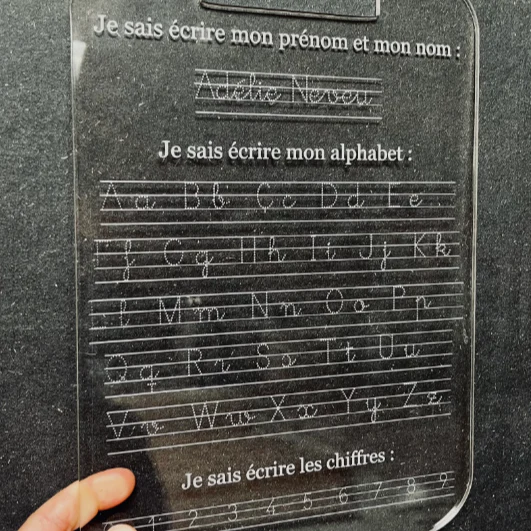 Je sais écrire mon prénom et mon nom :
Adélie Neveu
Je sais écrire mon alphabet :
A a B b C c D d E e
F f G g H h I i J j K k
L l M m N n O o P p
Q q R r S s T t U u
V v W w X x Y y Z z
Je sais écrire les chiffres :
1 2 3 4 5 6 7 8 9